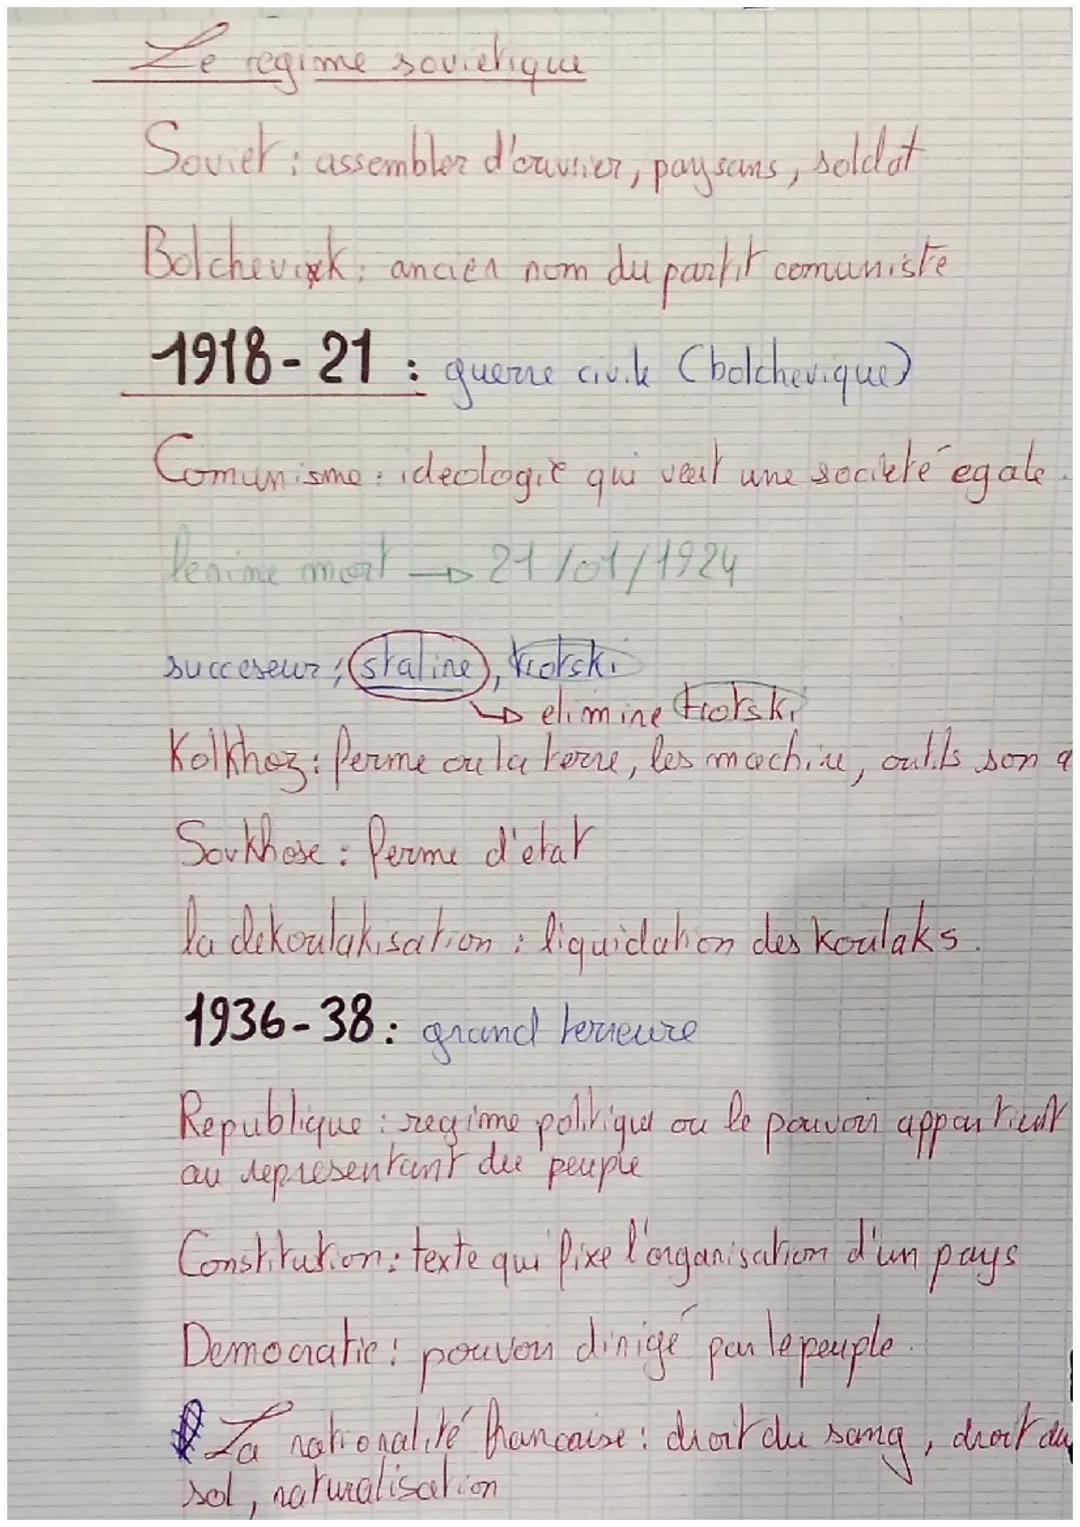 Le regime sovietique
Soviet : assembler d'ouvrier, paysans, soldat
Bolchevik : ancien nom du partit comuniste
1918-21 : guerre civile (bolchevique)
Comunisme : ideologie qui veut une societé egale.
lenine mort → 21/01/1924
succeseur ; staline, trotski
→ elimine trotski
Kolkhoz : ferme ou la terre, les machine, outils son
Sovkhose : ferme d'etat
la dekoulakisation : liquidation des koulaks.
1936-38 : grand terreure
Republique : regime politique ou le pouvoir appartient
au representant du peuple
Constitution : texte qui fixe l'organisation d'un pays
Democratie : pouvoir dirigé par le peuple.
La nationalité francaise : droit du sang, droit du
sol, naturalisation